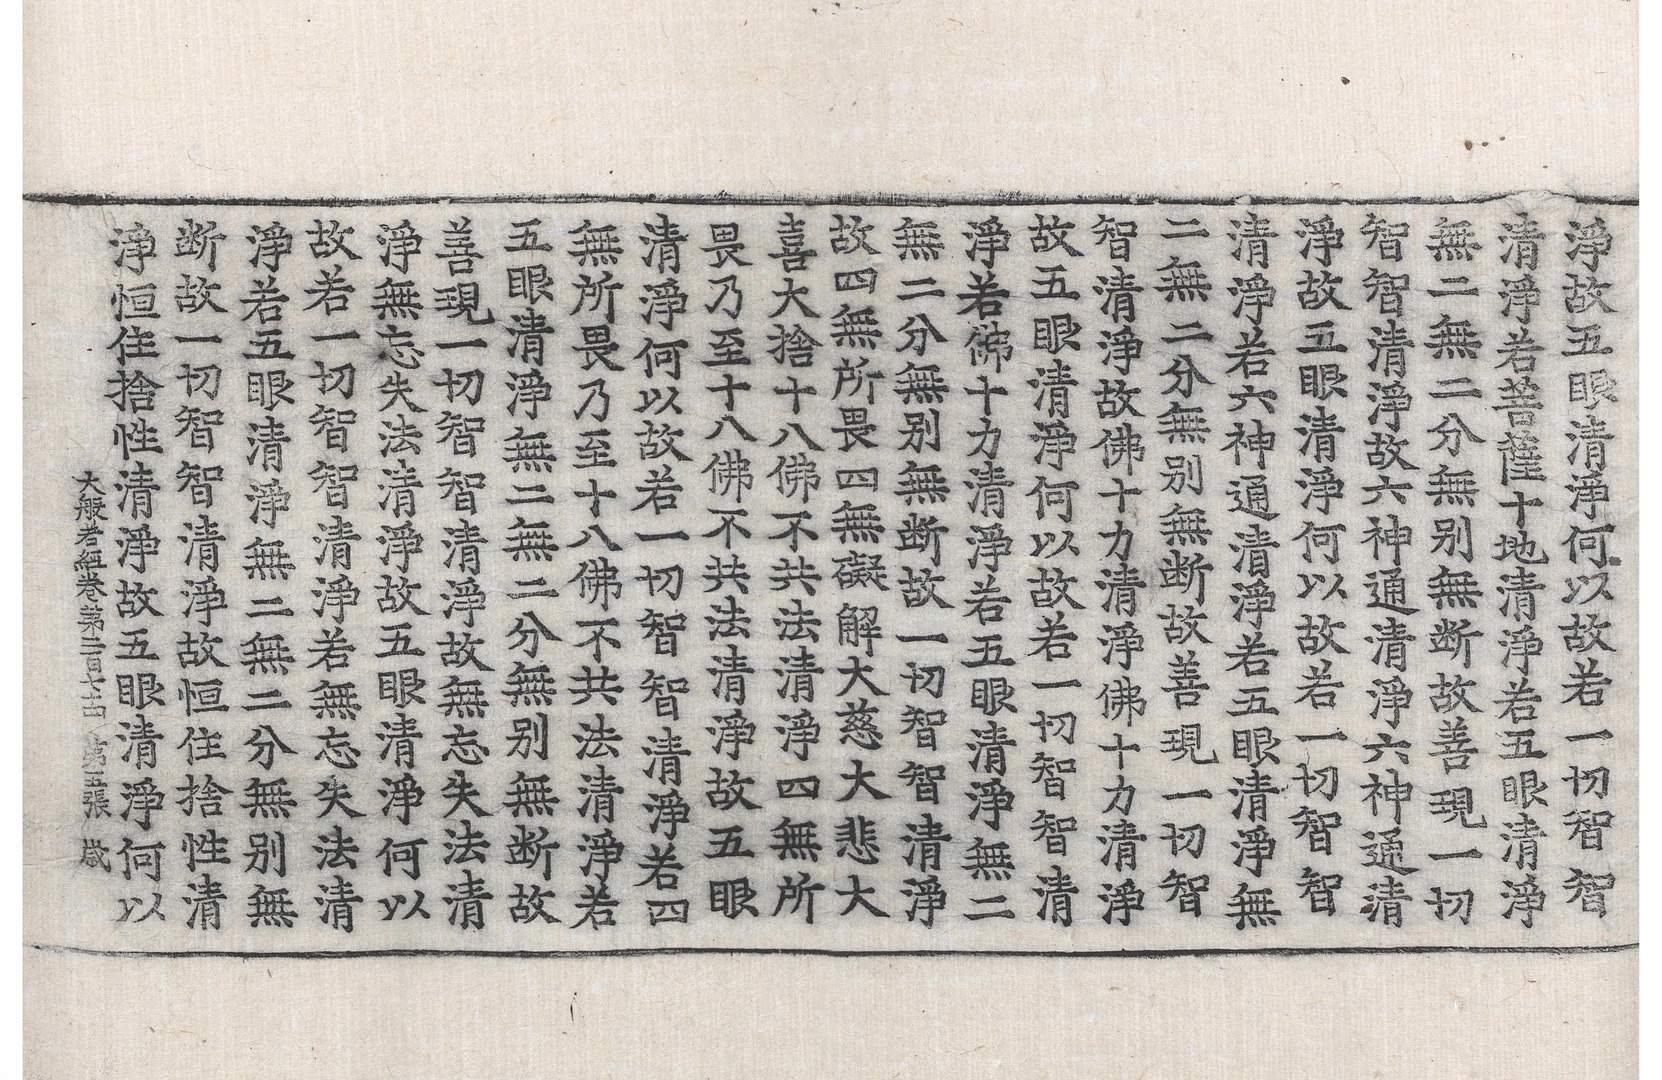 淨故五眼清淨何以故若一切智智
清淨若菩薩十地清淨若五眼清淨
無二無二分無别無断故善現一切
智智清淨故六神通清淨六神通清
淨故五眼清淨何以故若一切智智
清淨若六神通清淨若五眼清淨無
二無二分無别無断故善現一切智
智清淨故佛十力清淨佛十力清淨
故五眼清淨何以故若一切智智清
淨若佛十力清淨若五眼清淨無二
無二分無别無断故一切智智清淨
故四無所畏四無礙解大慈大悲大
喜大捨十八佛不共法清淨四無所
畏乃至十八佛不共法清淨故五眼
清淨何以故若一切智智清淨若四
無所畏乃至十八佛不共法清淨若
五眼清淨無二無二分無别無断故
善現一切智智清淨故無忘失法清
淨無忘失法清淨故五眼清淨何以
故若一切智智清淨若無忘失法清
淨若五眼清淨無二無二分無别無
断故一切智智清淨故恒住捨性清
淨恒住捨性清淨故五眼清淨何以
大般若經卷第二百七十四 第五張 歲